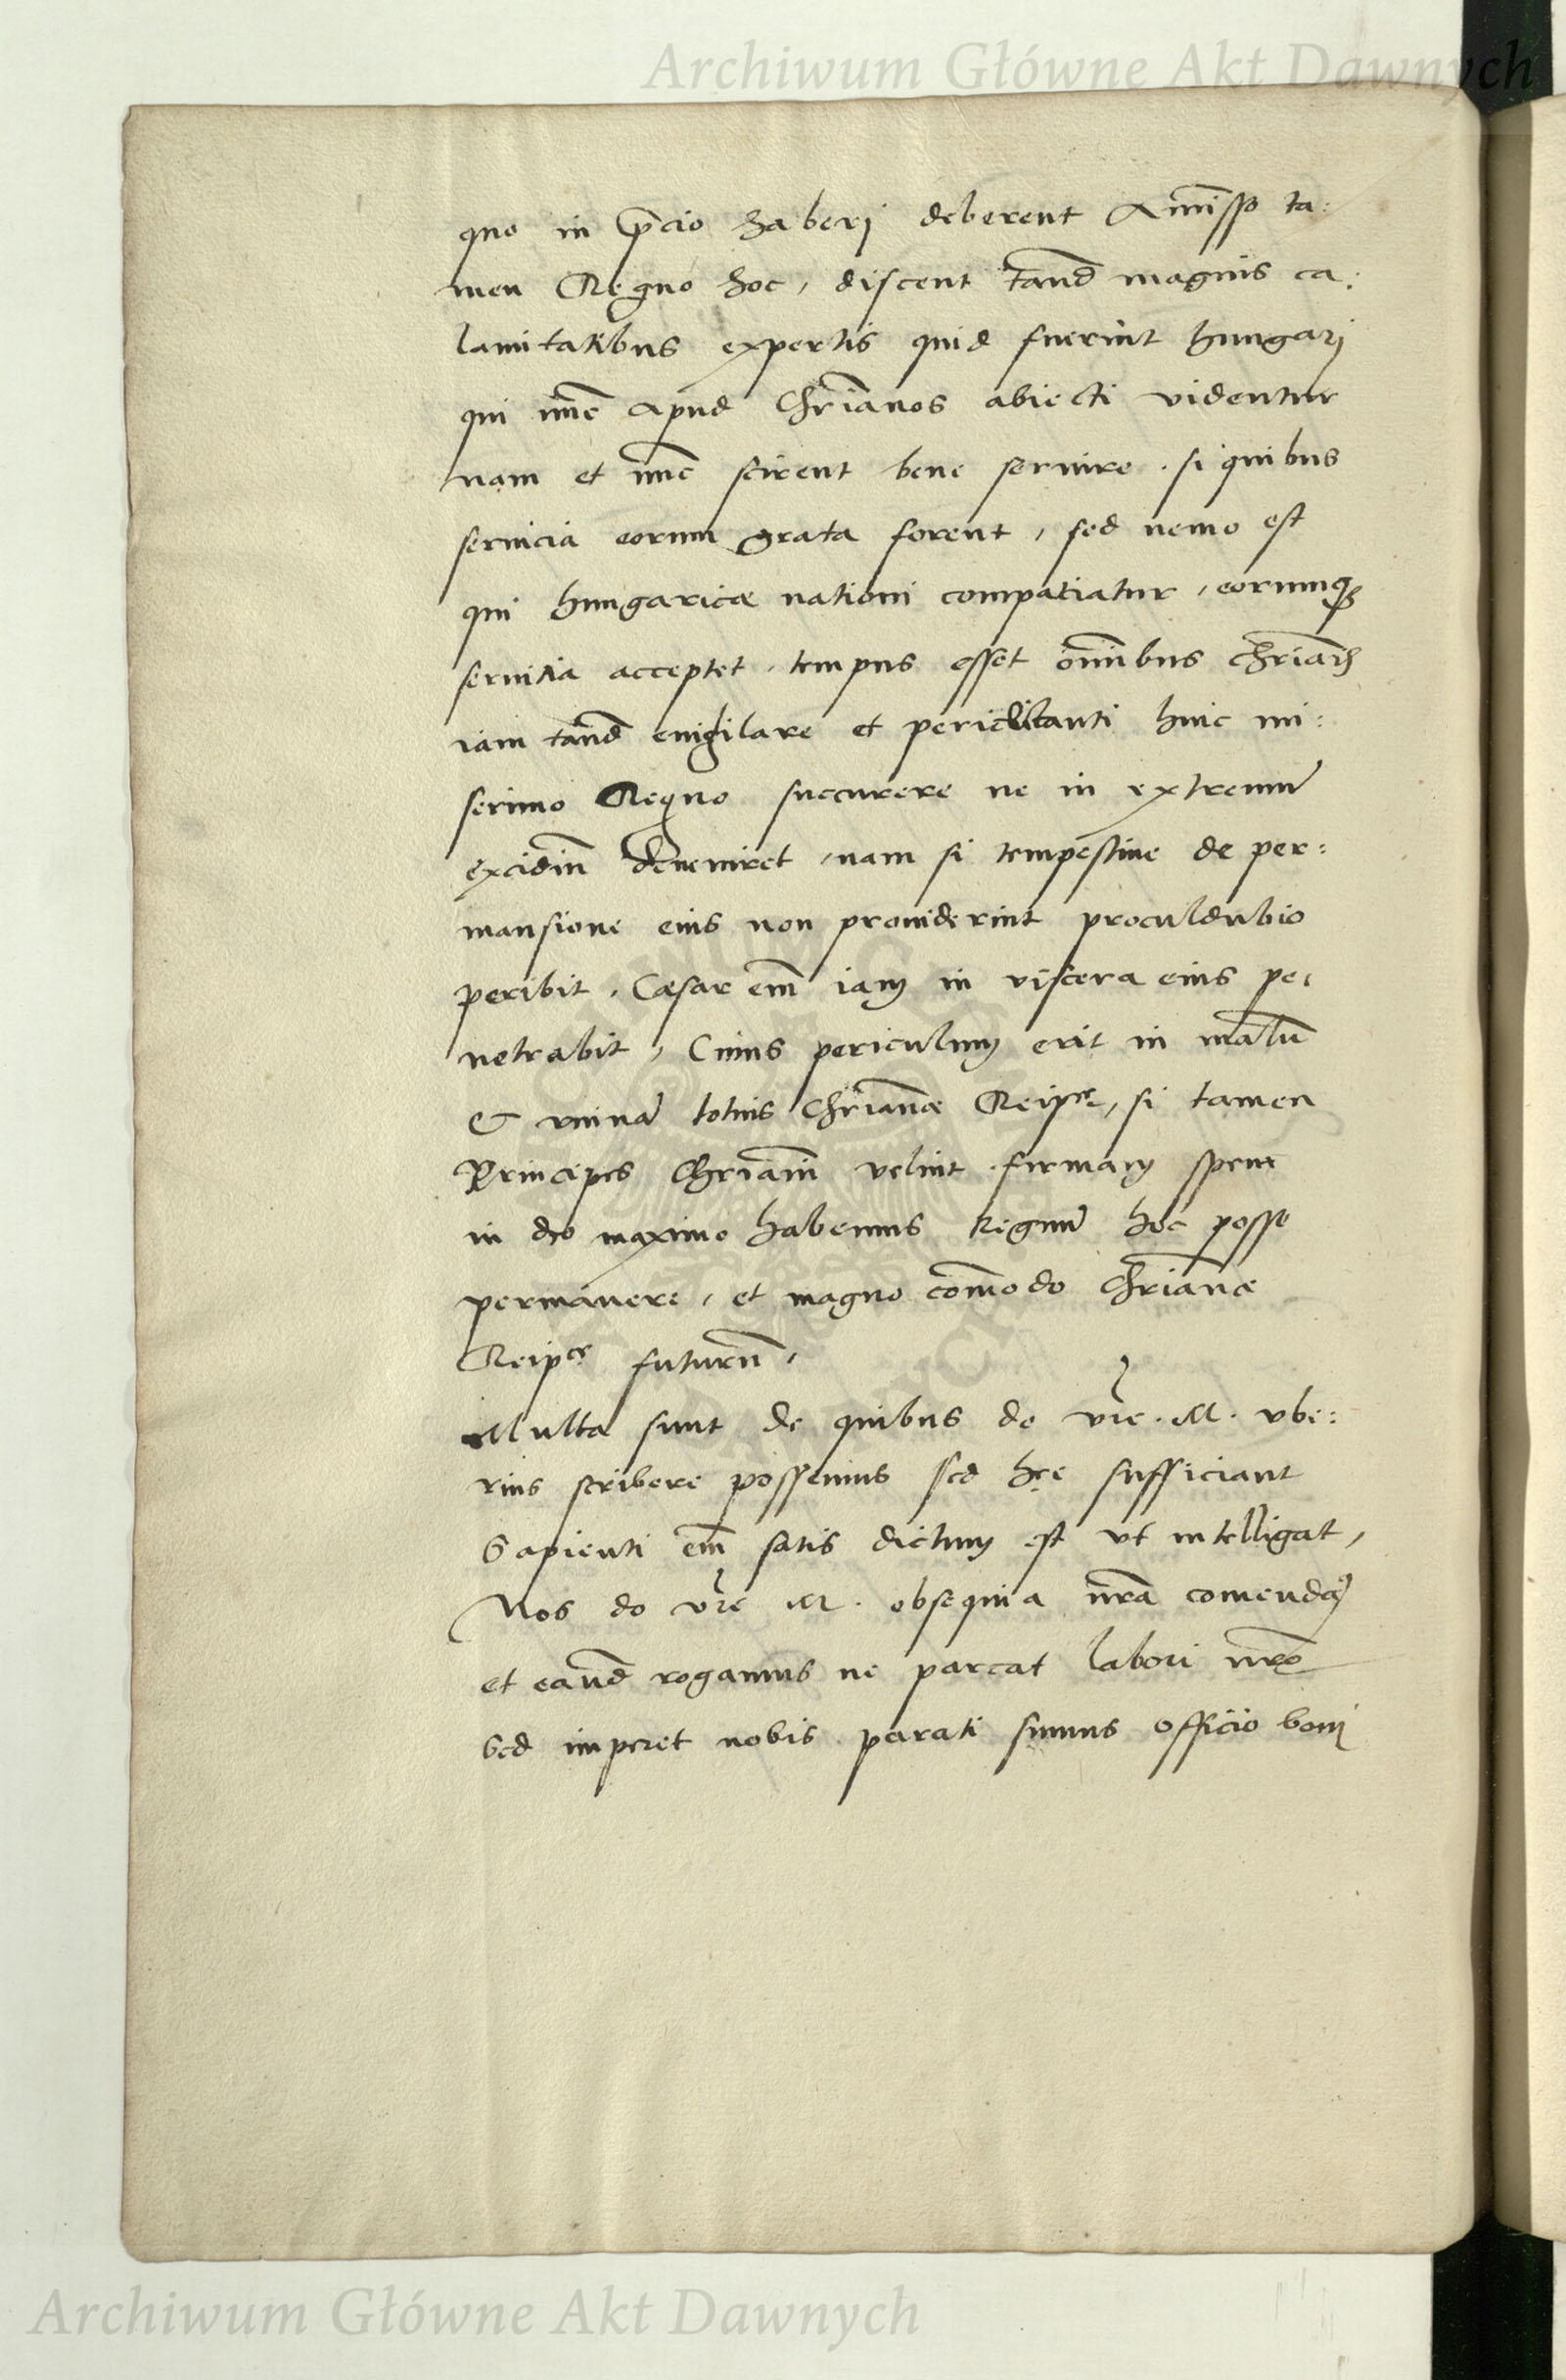 Archiwum Główne Akt Dawnych
quo in p̄cio haberj deberent Amisso ta:
men Regno hoc, discent tand̄ magnis ca:
lamitatibus expertis quid fuerint hungarj
qui nūc apud Chr̄ianos abiecti videntur
nam et nūc scirent bene seruire. si quibus
seruicia eorum grata forent, sed nemo est
qui hungaricæ nationi compatiatur, eorumqꝫ
seruitia acceptet. tempus esset om̄ibus chr̄ianis
iam tand̄ euigilare et periclitanti huic mi:
serimo Regno succurere ne in extremū
excidiū deueniret, nam si tempestiue de per:
mansione eius non prouiderint proculdubio
peribit. Cæsar em̄ iam in viscera eius pe:
netrabit, Cuius periculum erit in malū
& ruinā totius Chr̄ianæ Reipce, si tamen
Principes Chr̄iani velint. firmam spem
in deo maximo habemus Regnū hoc posse
permanere, et magno com̄odo chr̄ianæ
Reipce futurū,
Multa sunt de quibus do vr̄e. M. vbe:
rius scribere possemus sed hęc sufficiant
Sapienti em̄ satis dictum est vt intelligat,
Nos do vr̄e M. obsequia nr̄a comendam̄
et eand̄ rogamus ne parcat labori nr̄o
Sed imperet nobis parati sumus officio bonj
Archiwum Główne Akt Dawnych